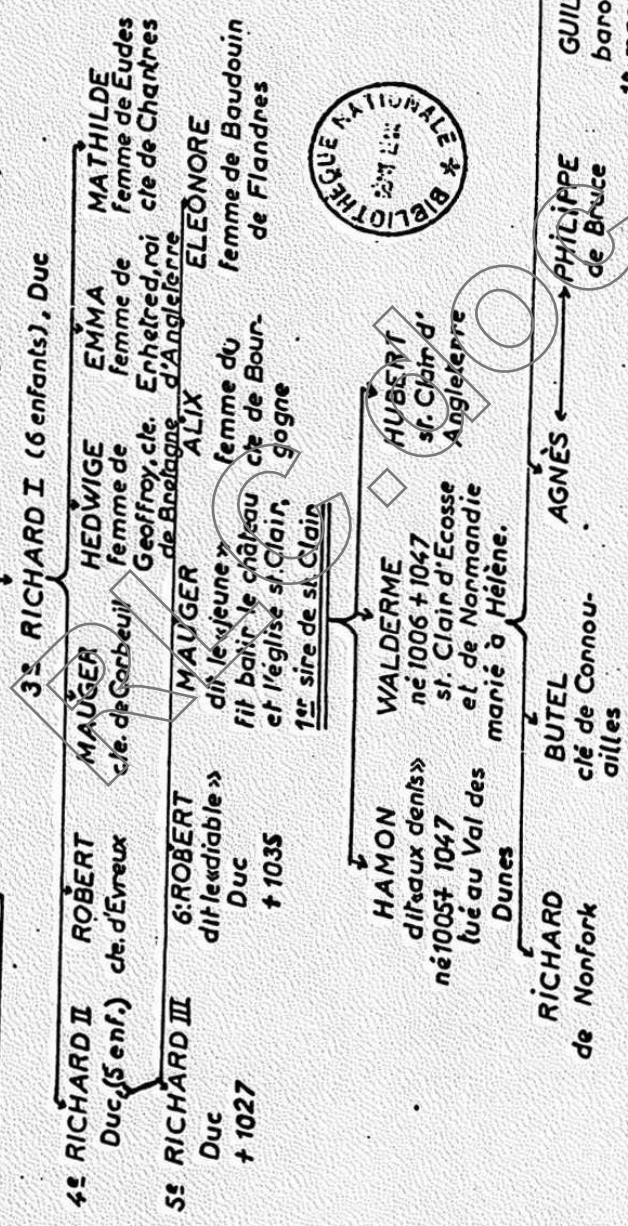 3e RICHARD I (6 enfants), Duc
4e RICHARD II
Duc, (5 enf.)
ROBERT
cte. d'Evreux
MAUGER
cte. de Corbeuil
HEDWIGE
femme de
Geoffroy, cte.
de Bretagne
EMMA
femme de
Enhetred, roi
d'Angleterre
MATHILDE
femme de Eudes
cte de Chartres
5e RICHARD III
Duc
+ 1027
6e ROBERT
dit le «diable»
Duc
+ 1035
MAUGER
dit le «jeune»
Fit batir le château
et l'église st Clair,
1er sire de st. Clair
ALIX
femme du
cte de Bour-
gogne
ELEONORE
femme de Baudouin
de Flandres
BIBLIOTHÈQUE NATIONALE *
HAMON
dit «aux dents»
né 1005 + 1047
tué au Val des
Dunes
WALDERME
né 1006 + 1047
st. Clair d'Ecosse
et de Normandie
marié à Hélène.
HUBERT
st. Clair d'
Angleterre
RICHARD
de Nonfork
BUTEL
cté de Cornou-
ailles
AGNÈS
PHILIPPE
de Bruce
GUIL
baro